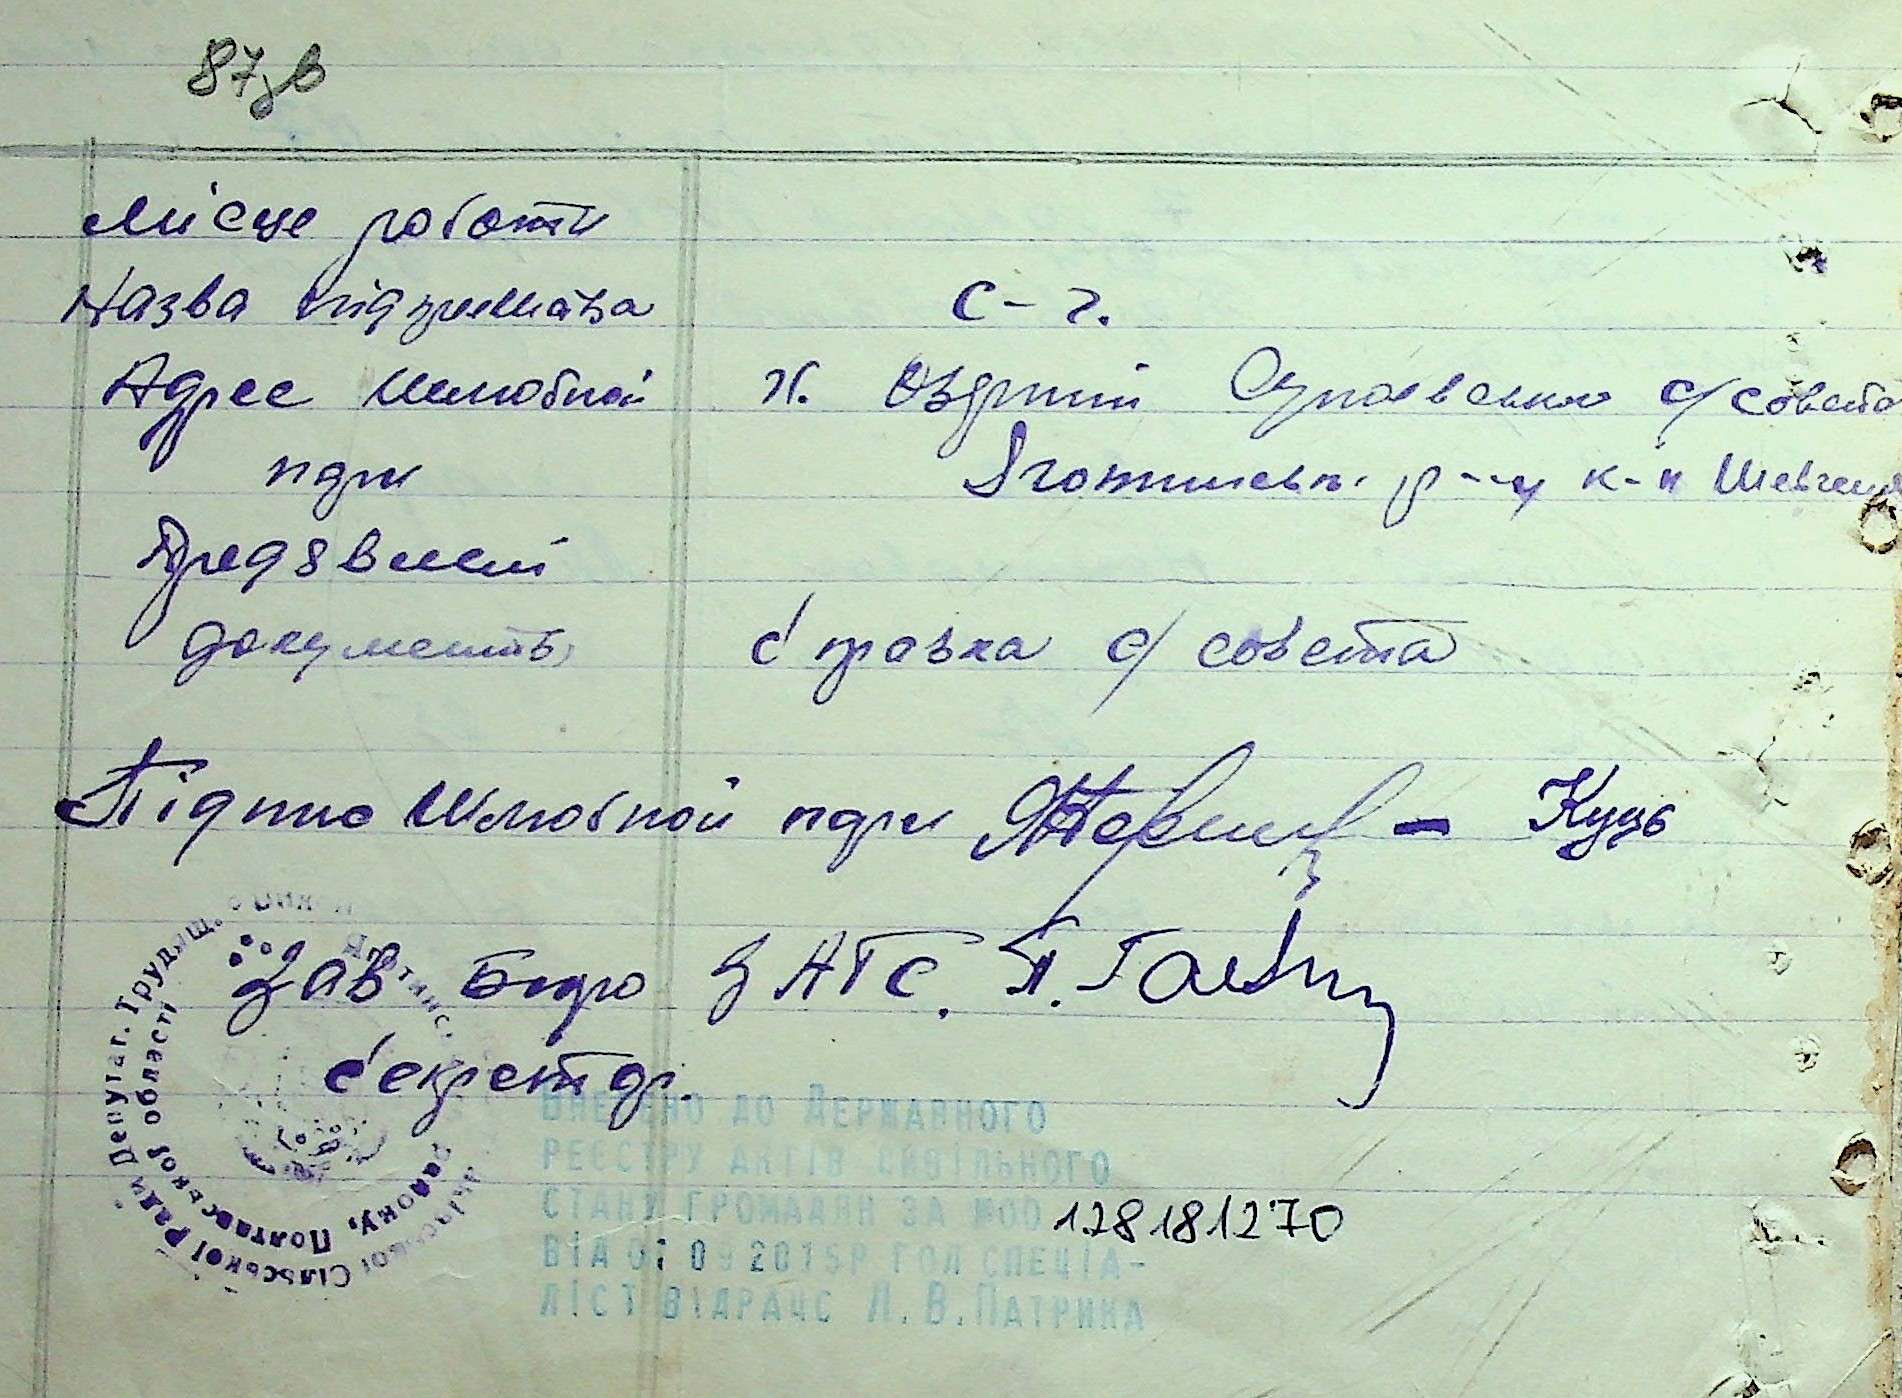 87зв
Місце роботи
Назва підприємства С-г.
Адрес шлюбной х. Озерний Супоевського с/совета
пари Яготинськ. р-ну к-п Шевченка
Предявлені
документы справка с/совета
Підпис шлюбной пари - Куць
Зав Бюро ЗАГС. П.
Секретар.
Депутат. Трудящ.
Сільської Ради
району, Полтавської області
Внесено до Державного
реєстру актів цивільного
стану громадян за №00 128181270
від 07 09 2015р гол спеціа-
ліст ВідРАЦС Л.В.Патрика